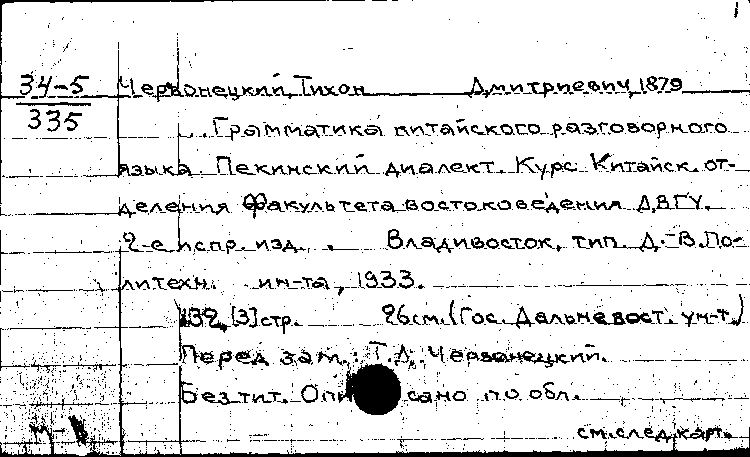 34-5
335
Червонецкий, Тихон Дмитриевич, 1879
Грамматика китайского разговорного
языка. Пекинский диалект. Курс Китайск. от-
деления Факультета востоковедения ДВГУ.
2-е испр. изд. . Владивосток, тип. Д.-В. По-
литехн. ин-та, 1933.
132, [3] стр. 26 см. (Гос. Дальневост. ун-т.)
Перед загл.: Т.Д. Червонецкий.
Без тит. л. Описано по обл.
см. след. карт.